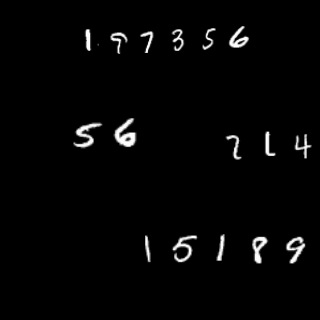 197356
56
714
15189